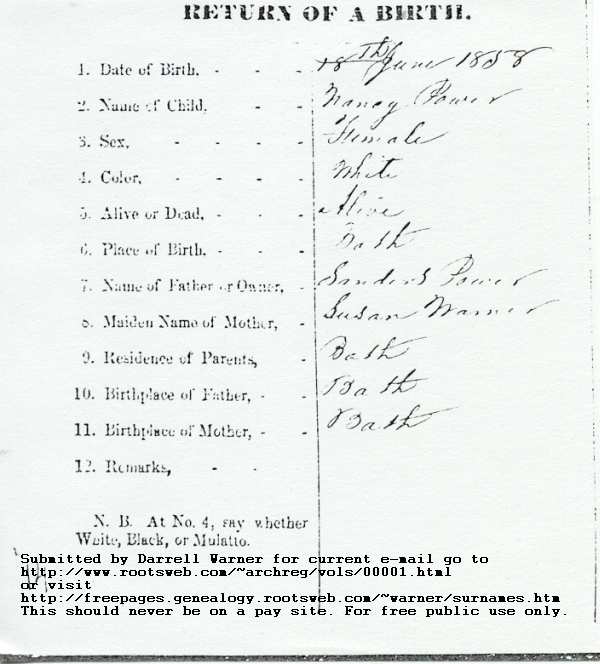 RETURN OF A BIRTH.
1. Date of Birth, - - - 18th June 1858
2. Name of Child, - - Nancy Power
3. Sex, - - - - Female
4. Color, - - - - White
5. Alive or Dead, - - - Alive
6. Place of Birth, - - - Bath
7. Name of Father or Owner, - Sanders Power
8. Maiden Name of Mother, - Susan Warner
9. Residence of Parents, - Bath
10. Birthplace of Father, - - Bath
11. Birthplace of Mother, - - Bath
12. Remarks, - -
N. B. At No. 4, say whether
White, Black, or Mulatto.
Submitted by Darrell Warner for current e-mail go to
http://www.rootsweb.com/~archreg/vols/00001.html
or visit
http://freepages.genealogy.rootsweb.com/~warner/surnames.htm
This should never be on a pay site. For free public use only.